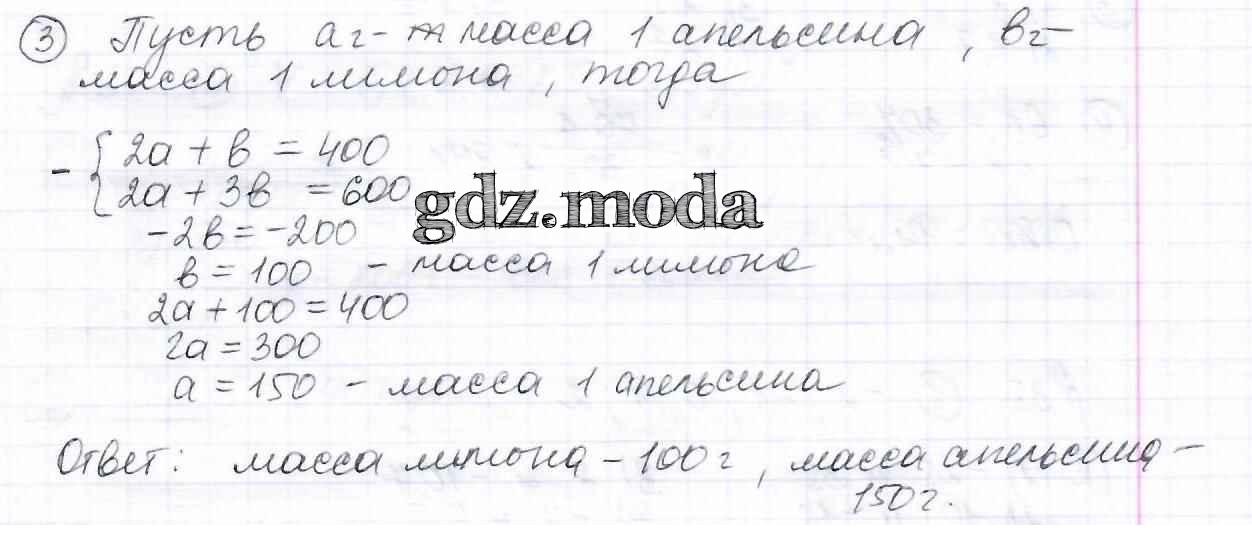 ③ Пусть а г - масса 1 апельсина, в г -
масса 1 лимона, тогда
- { 2а + в = 400
2а + 3в = 600
gdz.moda
-2в = -200
в = 100 - масса 1 лимона
2а + 100 = 400
2а = 300
а = 150 - масса 1 апельсина
Ответ: масса лимона - 100 г, масса апельсина -
150 г.